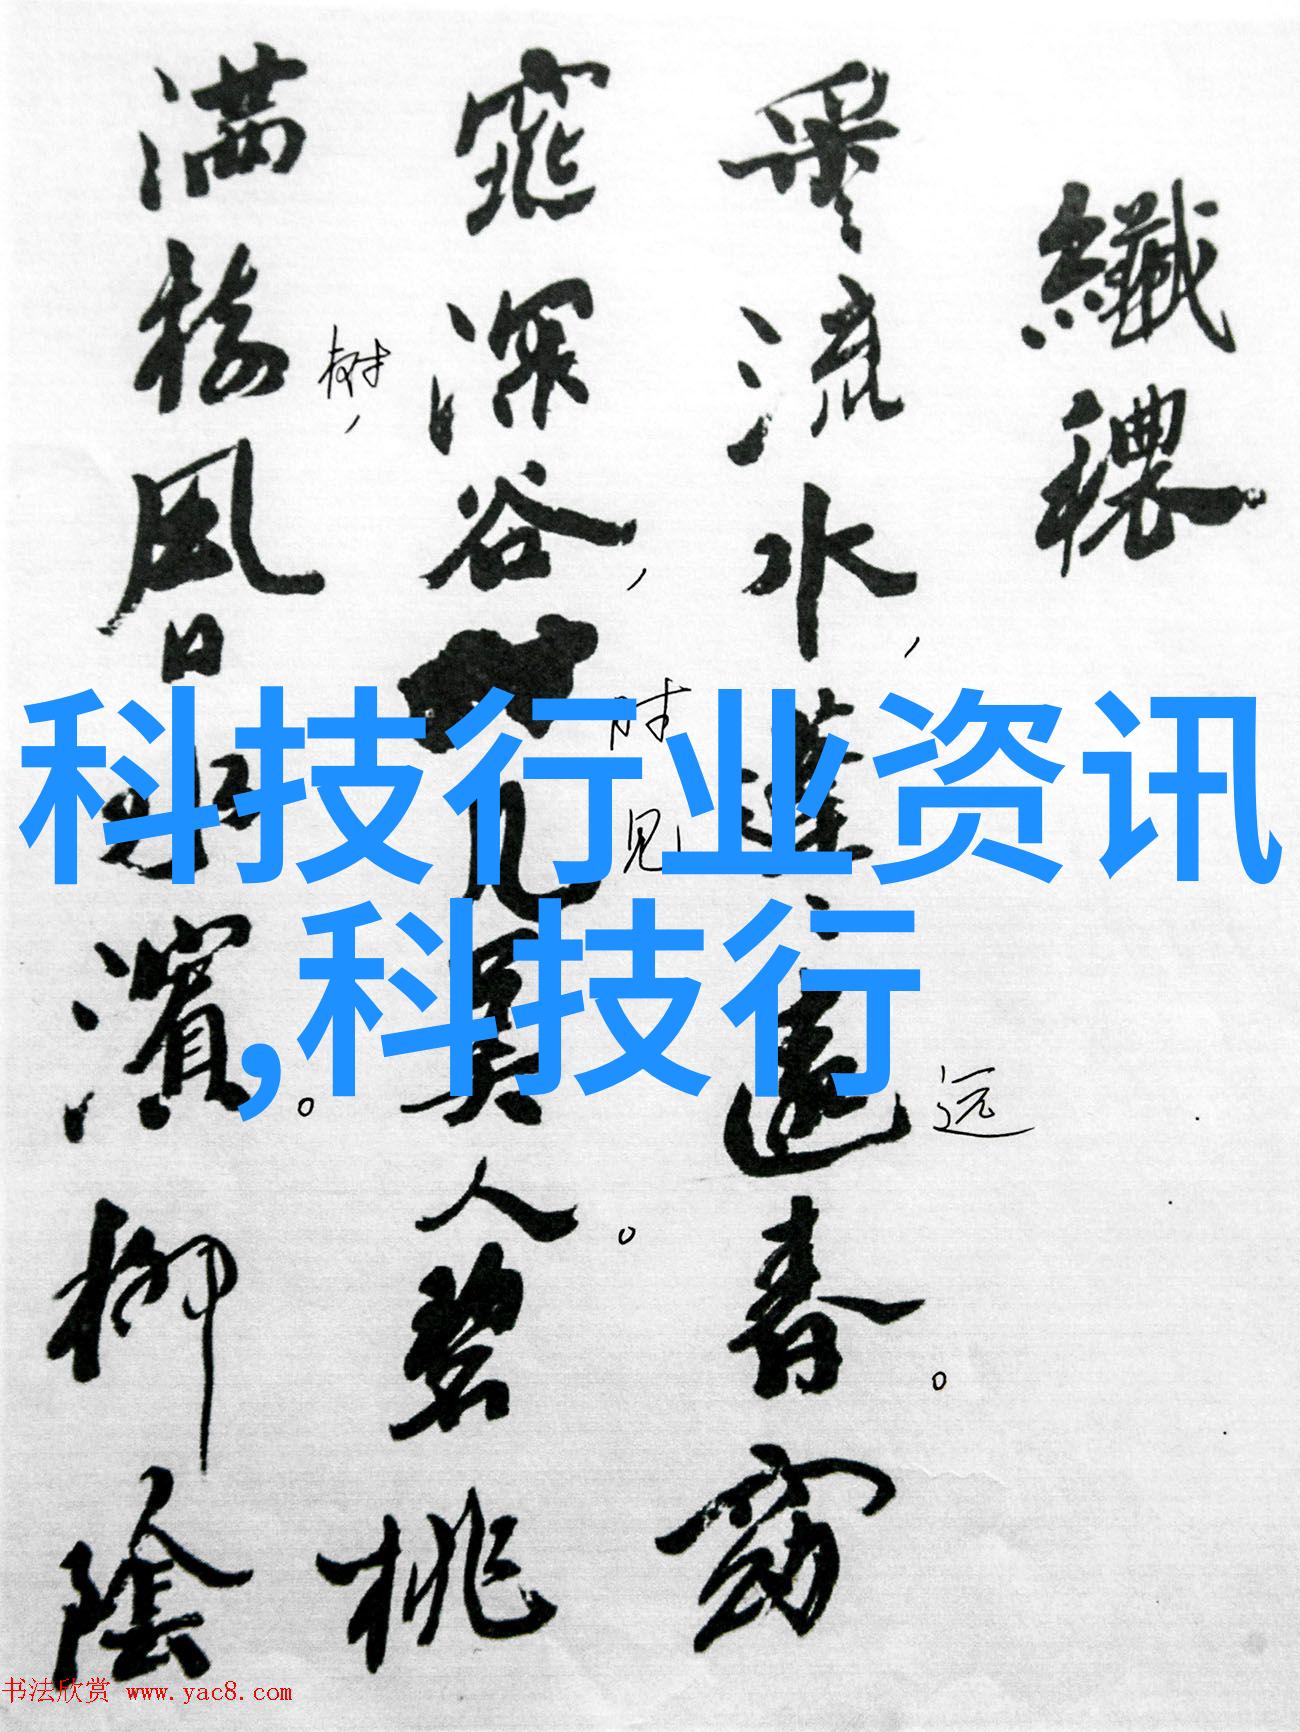 纖穠
采流水，蓬蓬遠春。窈
远
窕深谷，時見美人。碧桃
时
见
满樹風日水濱。柳陰
树，
科技行业资讯
,科技行
书法欣赏 www.yac8.com